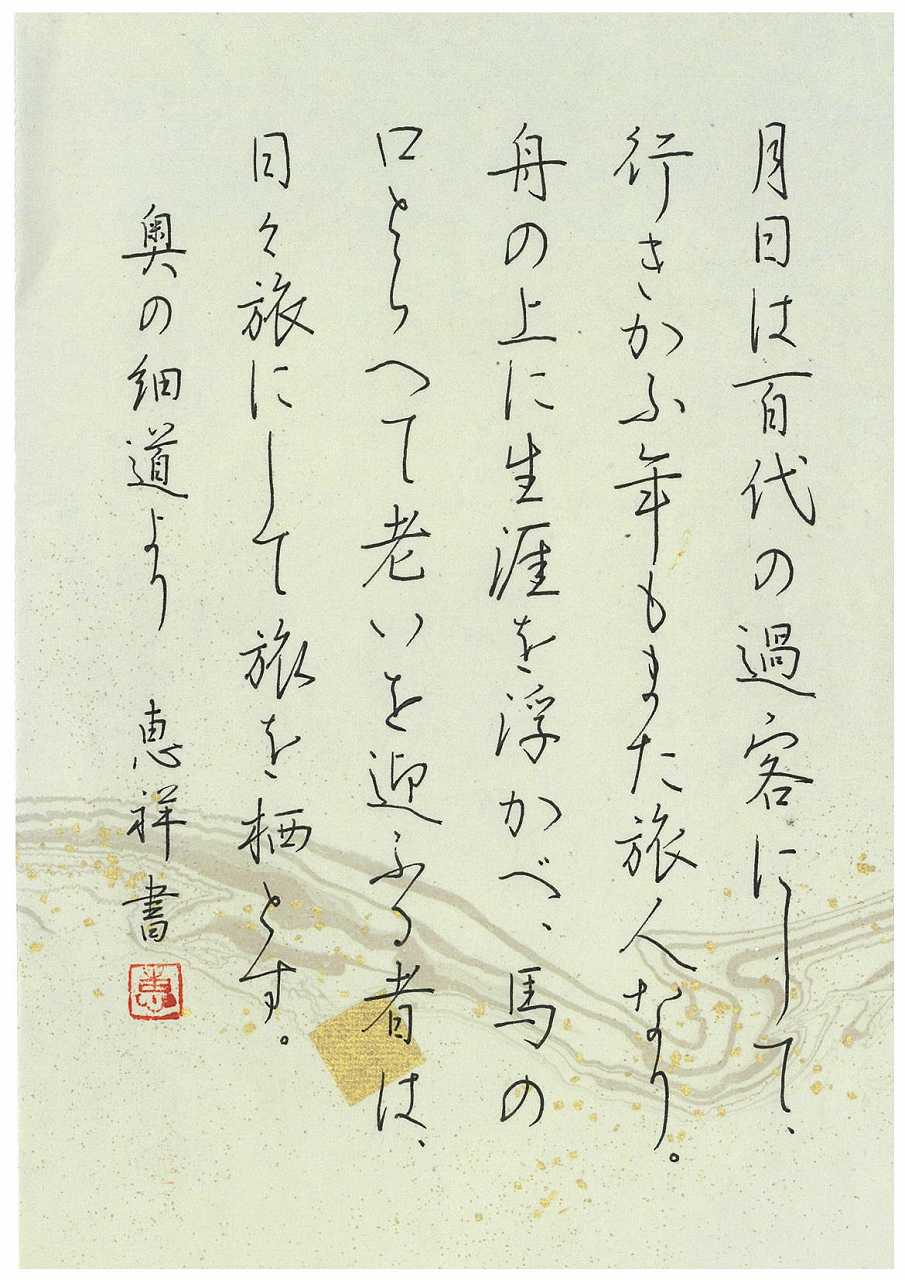 月日は百代の過客にして、
行きかふ年もまた旅人なり。
舟の上に生涯を浮かべ、馬の
口とらへて老いを迎ふる者は、
日々旅にして旅を栖とす。
奥の細道より 恵祥書
恵